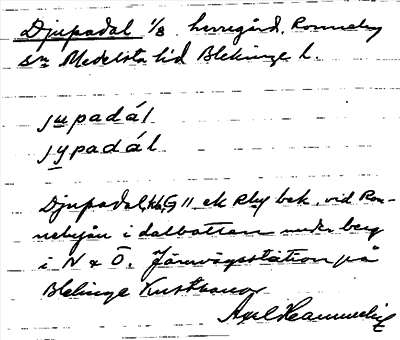 Djupadal 1/8 herregård, Ronneby
sn Medelsta hd Blekinge l.
jupadál
jypadál
Djupadal, kb, G 11 ek Rby bek. vid Ron-
nebyån i dalbotten under berg
i N & Ö. Järnvägsstation på
Blekinge Kustbanor
Axel